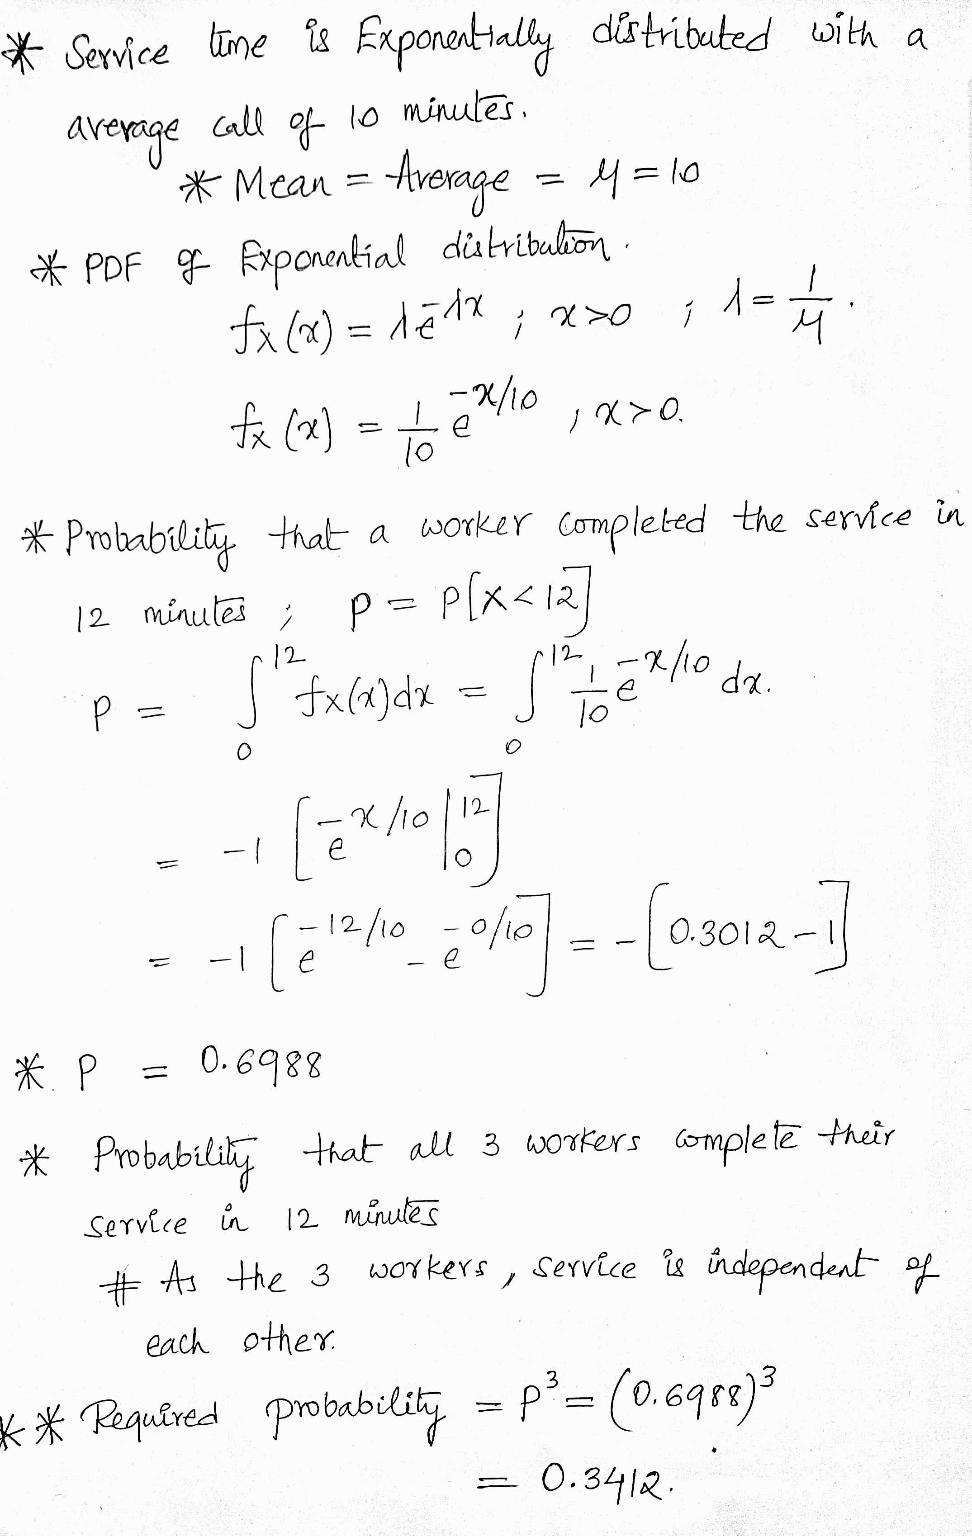 * Service time is Exponentially distributed with a
average call of 10 minutes.
* Mean = Average = μ = 10
* PDF of Exponential distribution.
fx(x) = λe^-λx ; x>0 ; λ = 1/μ.
fx(x) = 1/10 e^-x/10 , x>0.
* Probability that a worker completed the service in
12 minutes ; P = P[X<12]
P = ∫_0^12 fx(x)dx = ∫_0^12 1/10 e^-x/10 dx.
= -1 [e^-x/10 |_0^12]
= -1 [e^-12/10 - e^-0/10] = -[0.3012-1]
* P = 0.6988
* Probability that all 3 workers complete their
service in 12 minutes
# As the 3 workers, service is independent of
each other.
** Required probability = P^3 = (0.6988)^3
= 0.3412.